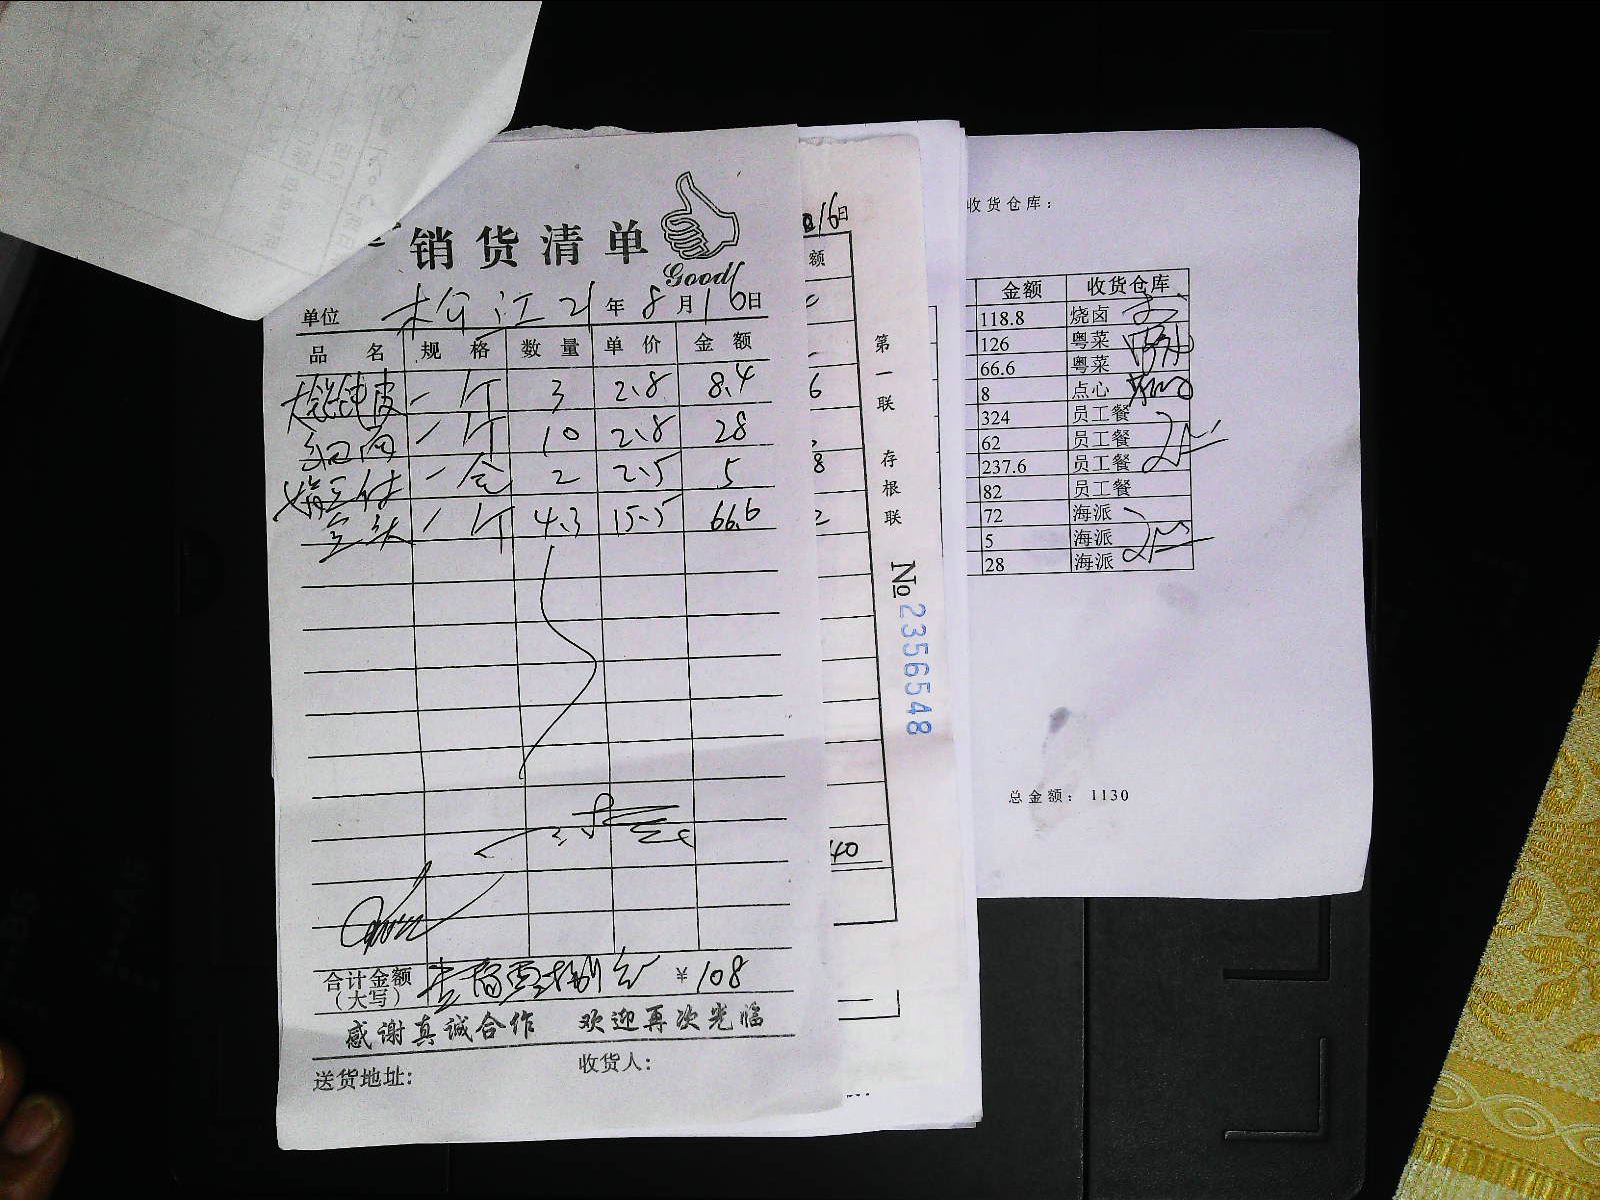 销货清单
Good!
单位 松江 21年8月16日
品名 规格 数量 单价 金额
大 皮 一 斤 3 2.8 8.4
面 一 斤 10 2.8 28
一 2 2.5 5
头 一 斤 4.3 15.5 66.6
合计金额(大写) 壹 ¥ 108
感谢真诚合作 欢迎再次光临
送货地址: 收货人:
16日
额
6
8
2
40
第一联 存根联
№2356548
收货仓库:
金额 收货仓库
118.8 烧卤
126 粤菜
66.6 粤菜
8 点心
324 员工餐
62 员工餐
237.6 员工餐
82 员工餐
72 海派
5 海派
28 海派
总金额: 1130